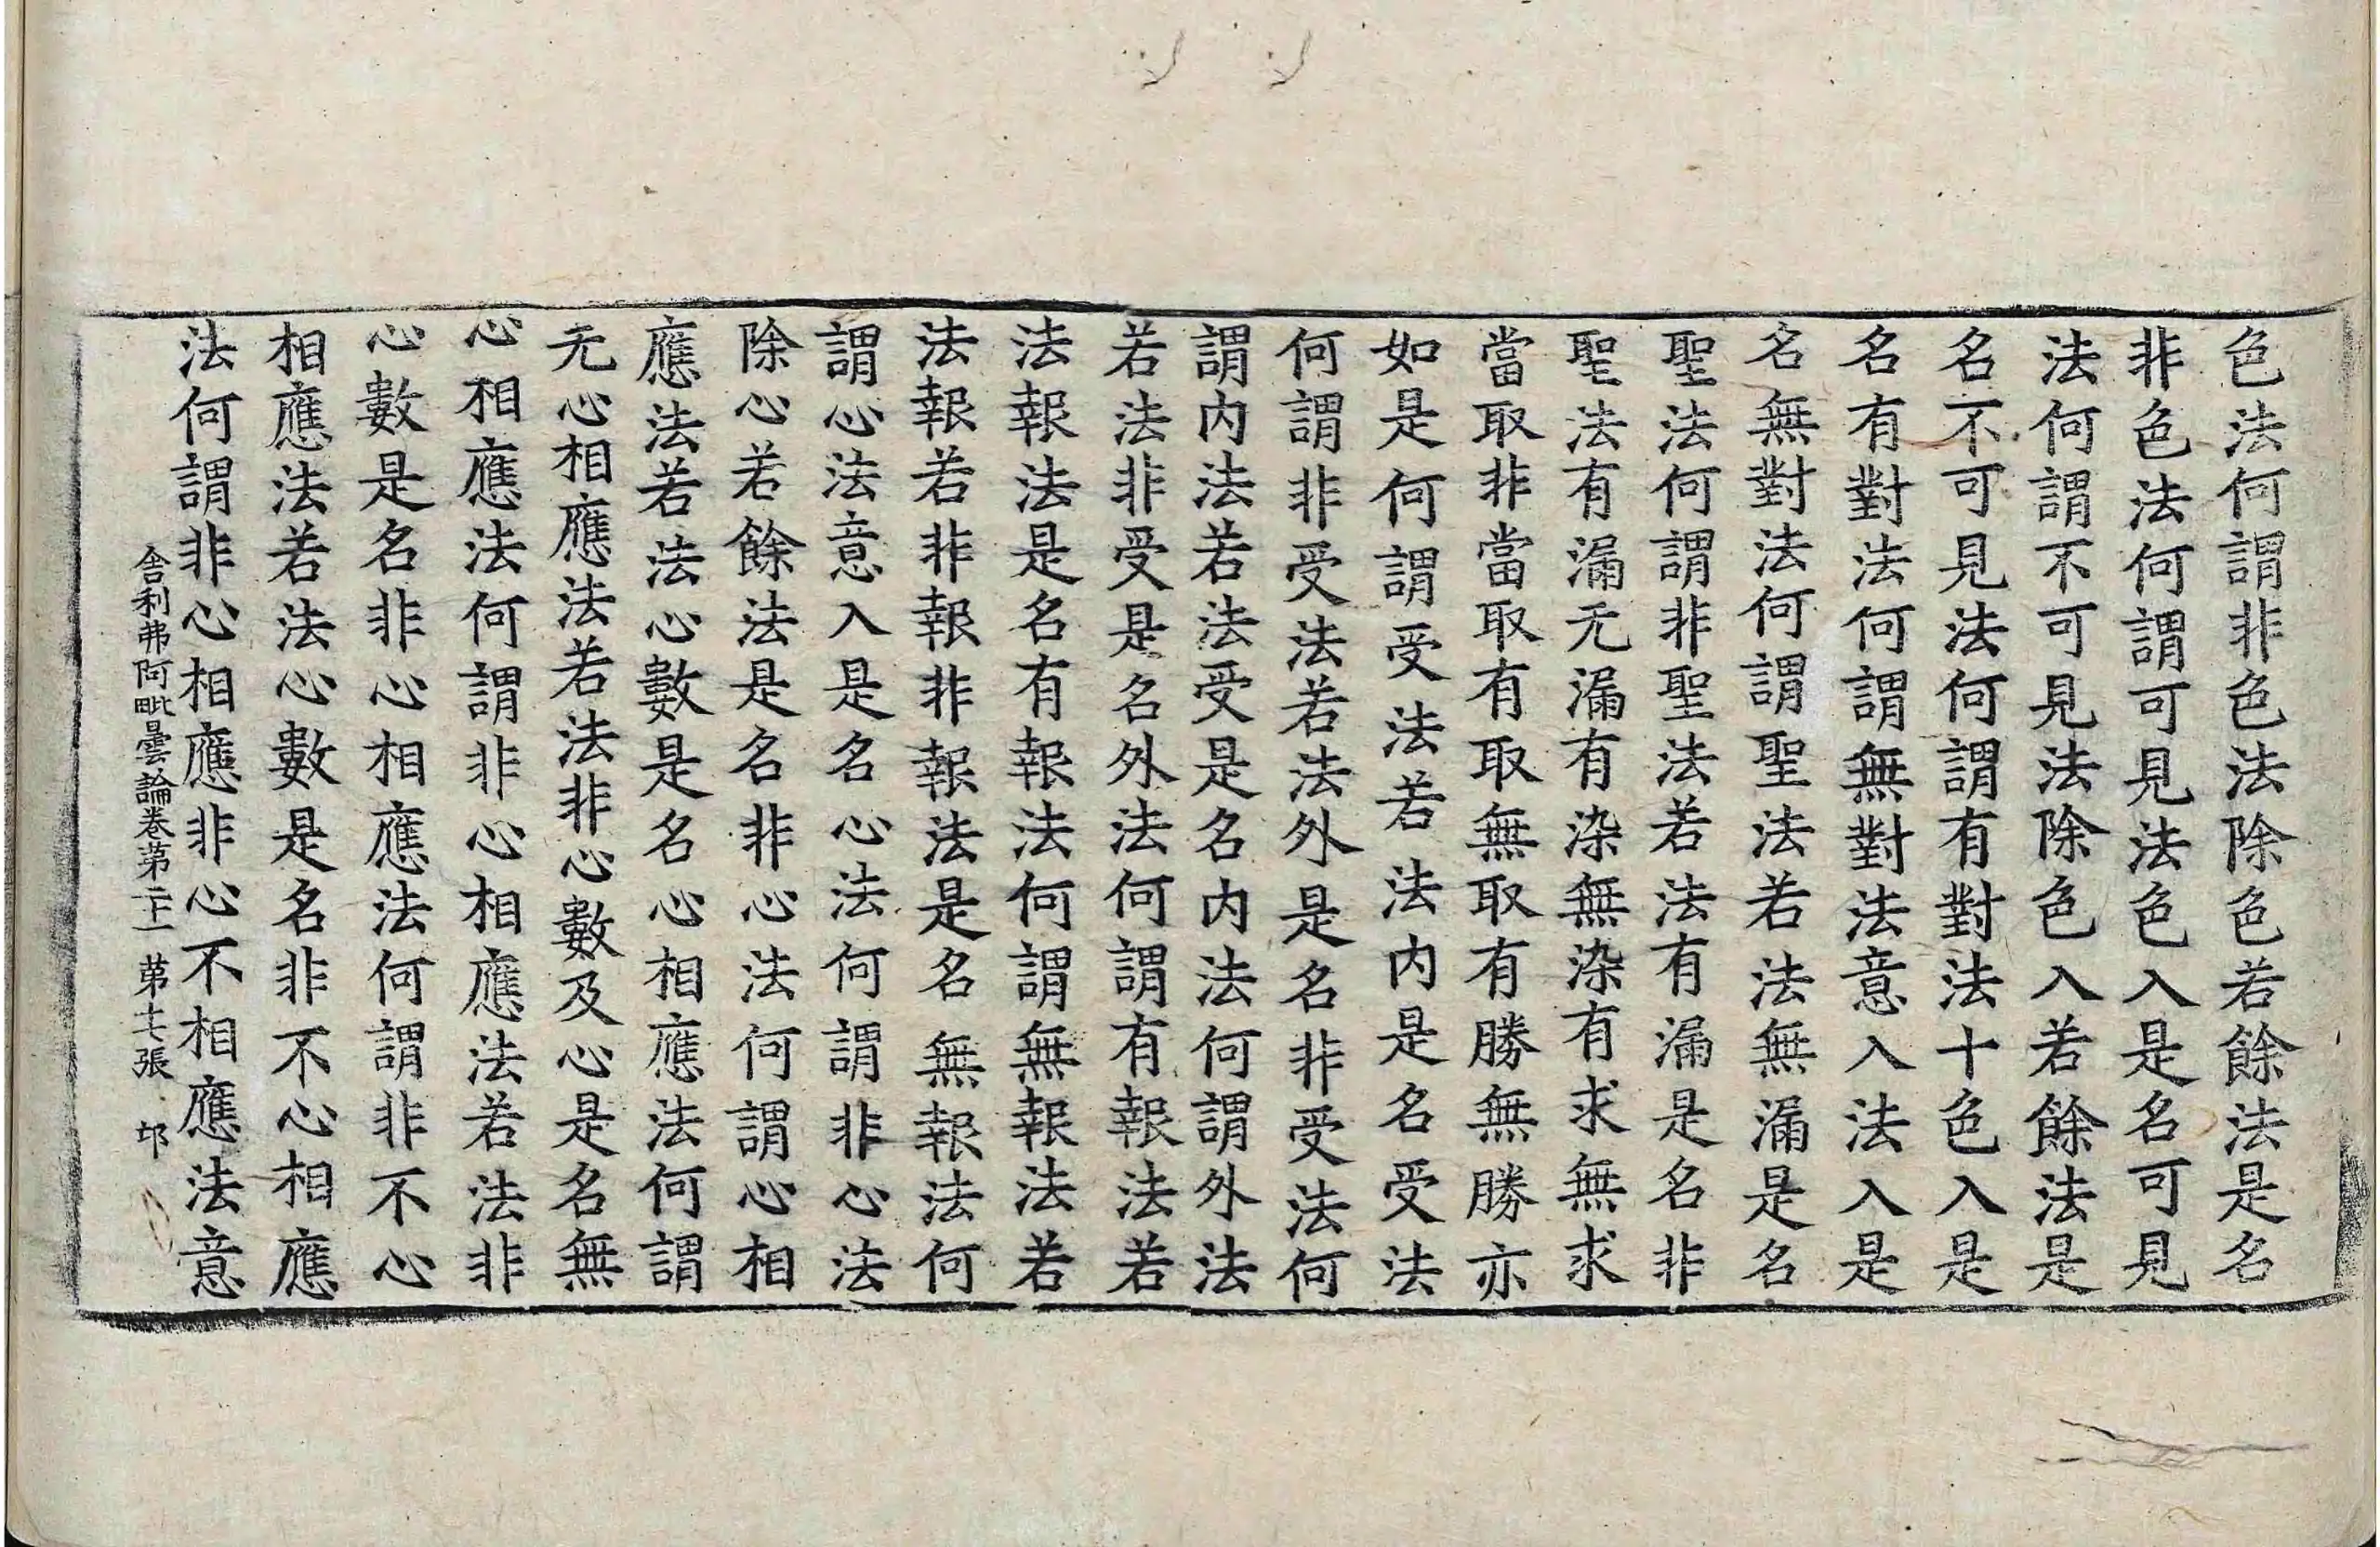 色法何謂非色法除色若餘法是名
非色法何謂可見法色入是名可見
法何謂不可見法除色入若餘法是
名不可見法何謂有對法十色入是
名有對法何謂無對法意入法入是
名無對法何謂聖法若法無漏是名
聖法何謂非聖法若法有漏是名非
聖法有漏无漏有染無染有求無求
當取非當取有取無取有勝無勝亦
如是何謂受法若法内是名受法
何謂非受法若法外是名非受法何
謂内法若法受是名内法何謂外法
若法非受是名外法何謂有報法若
法報法是名有報法何謂無報法若
法報若非報非報法是名無報法何
謂心法意入是名心法何謂非心法
除心若餘法是名非心法何謂心相
應法若法心數是名心相應法何謂
无心相應法若法非心數及心是名無
心相應法何謂非心相應法若法非
心數是名非心相應法何謂非不心
相應法若法心數是名非不心相應
法何謂非心相應非心不相應法意
舍利弗阿毗曇論卷第二十一 第十七張 邙